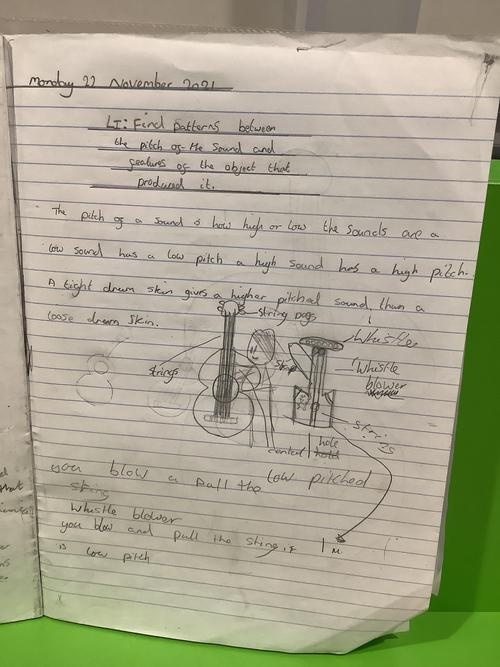 monday 22 November 2021
LI: Find patterns between
the pitch of the sound and
features of the object that
produced it.
The pitch of a sound is how high or low the sounds are a
low sound has a low pitch a high sound has a high pitch.
A tight drum skin gives a higher pitched sound than a
loose drum skin.
string pegs
whistle
strings
whistle
blower
hole
you blow a pull the low pitched
string
whistle blower
you blow and pull the string, it
is low pitch